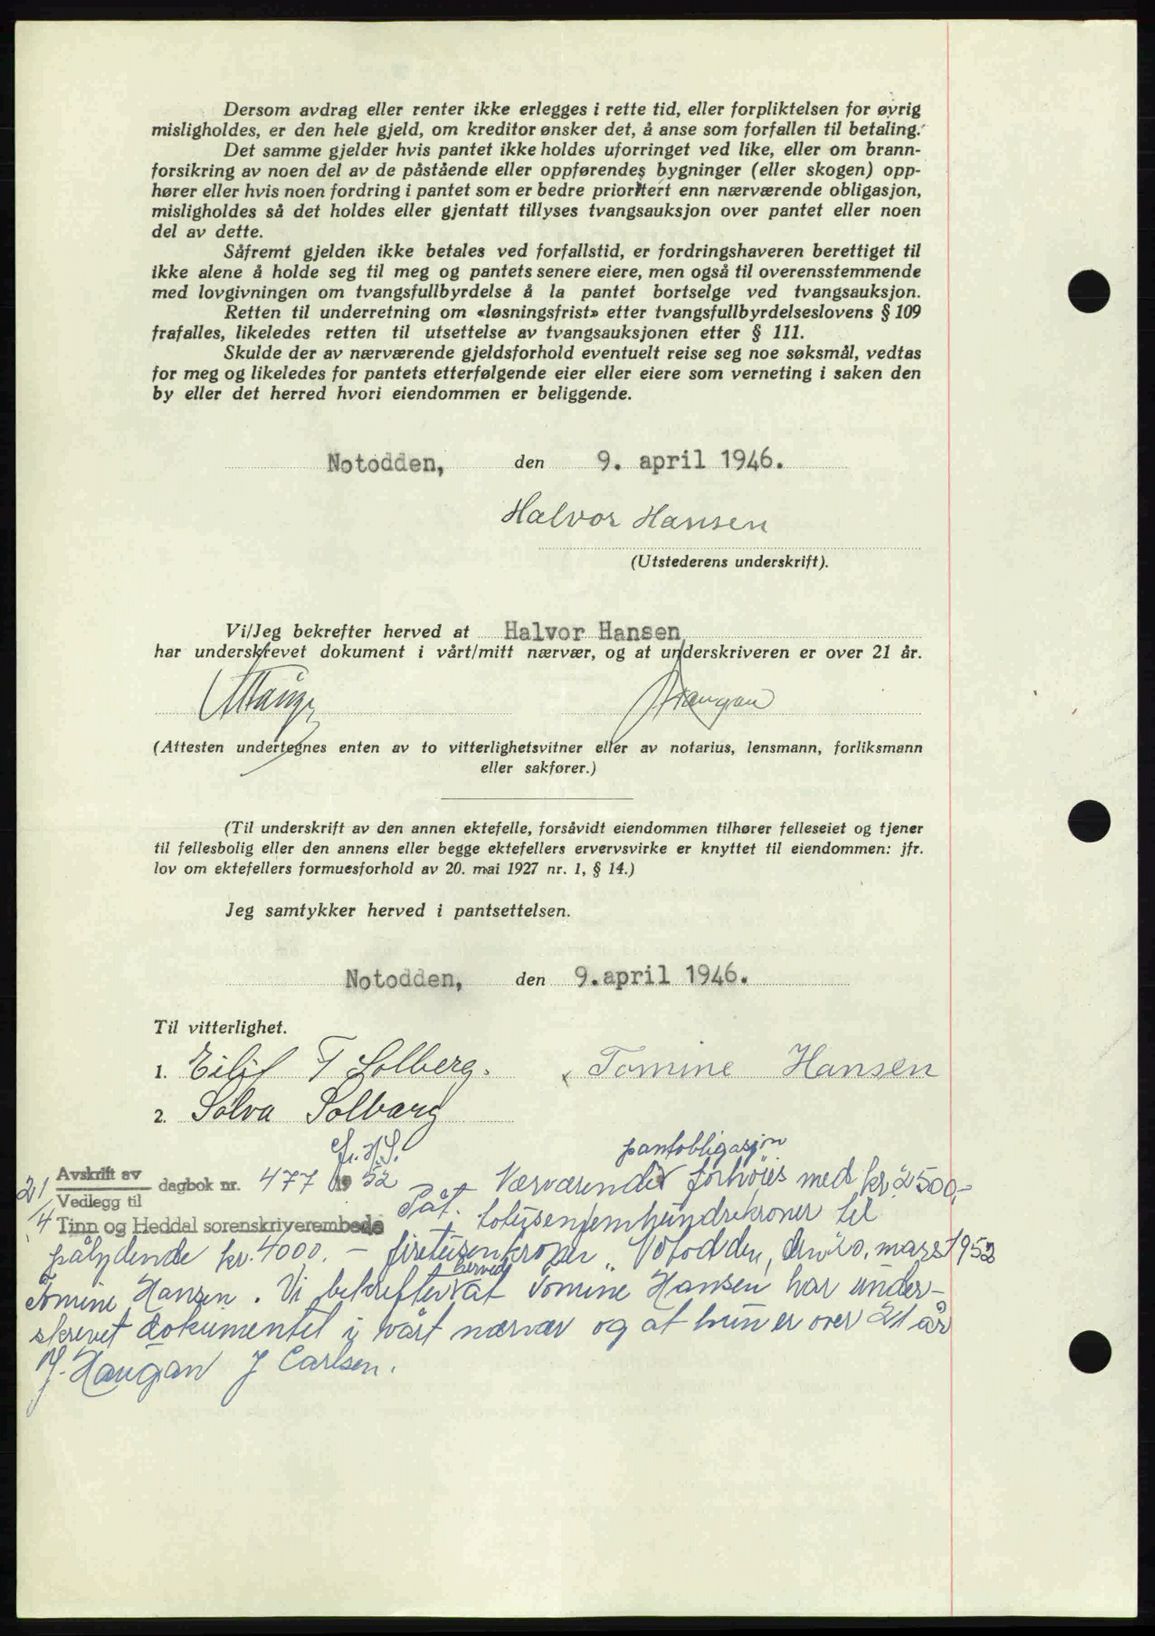 Dersom avdrag eller renter ikke erlegges i rette tid, eller forpliktelsen for øvrig
misligholdes, er den hele gjeld, om kreditor ønsker det, å anse som forfallen til betaling.
Det samme gjelder hvis pantet ikke holdes uforringet ved like, eller om brann-
forsikring av noen del av de påstående eller oppførendes bygninger (eller skogen) opp-
hører eller hvis noen fordring i pantet som er bedre prioritert enn nærværende obligasjon,
misligholdes så det holdes eller gjentatt tillyses tvangsauksjon over pantet eller noen
del av dette.
Såfremt gjelden ikke betales ved forfallstid, er fordringshaveren berettiget til
ikke alene å holde seg til meg og pantets senere eiere, men også til overensstemmende
med lovgivningen om tvangsfullbyrdelse å la pantet bortselge ved tvangsauksjon.
Retten til underretning om «løsningsfrist» etter tvangsfullbyrdelseslovens § 109
frafalles, likeledes retten til utsettelse av tvangsauksjonen etter § 111.
Skulde der av nærværende gjeldsforhold eventuelt reise seg noe søksmål, vedtas
for meg og likeledes for pantets etterfølgende eier eller eiere som verneting i saken den
by eller det herred hvori eiendommen er beliggende.
Notodden, den 9. april 1946.
Halvor Hansen
(Utstederens underskrift).
Vi/Jeg bekrefter herved at Halvor Hansen
har underskrevet dokument i vårt/mitt nærvær, og at underskriveren er over 21 år.
Haugan
(Attesten undertegnes enten av to vitterlighetsvitner eller av notarius, lensmann, forliksmann
eller sakfører.)
(Til underskrift av den annen ektefelle, forsåvidt eiendommen tilhører felleseiet og tjener
til fellesbolig eller den annens eller begge ektefellers ervervsvirke er knyttet til eiendommen: jfr.
lov om ektefellers formuesforhold av 20. mai 1927 nr. 1, § 14.)
Jeg samtykker herved i pantsettelsen.
Notodden, den 9.april 1946.
Til vitterlighet.
1. Eilif T Solberg. Tomine Hansen
2. Solva Solberg
pantobligasjon
21/4 Avskrift av
Vedlegg til dagbok nr. 477 1952
Tinn og Heddal sorenskriverembede
Påt. Nærværende forhöies med kr. 2500,-
totusenfemhundrekroner til
pålydende kr. 4000. - firetusenkroner Notodden, den 20. mars 1952
herved
Tomine Hansen. Vi bekrefter at Tomine Hansen har under-
skrevet dokumentet i vårt nærvær og at hun er over 21 år
J. Haugan J Carlsen.